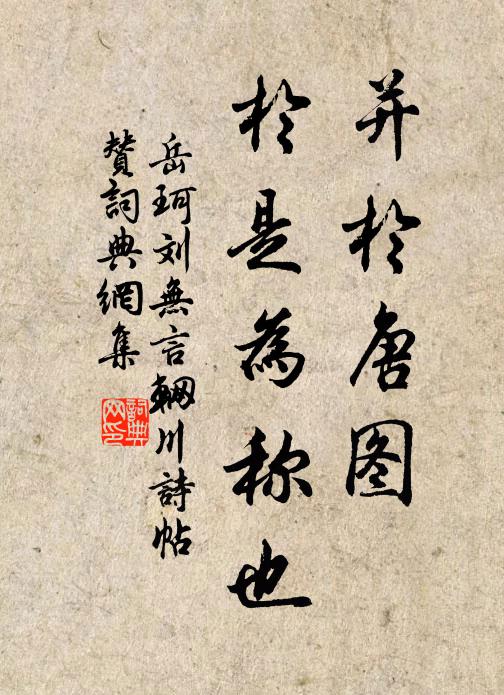 并於唐图
於是為称也
岳珂刘無言輞川詩帖
贊詞典網集
詞典网印